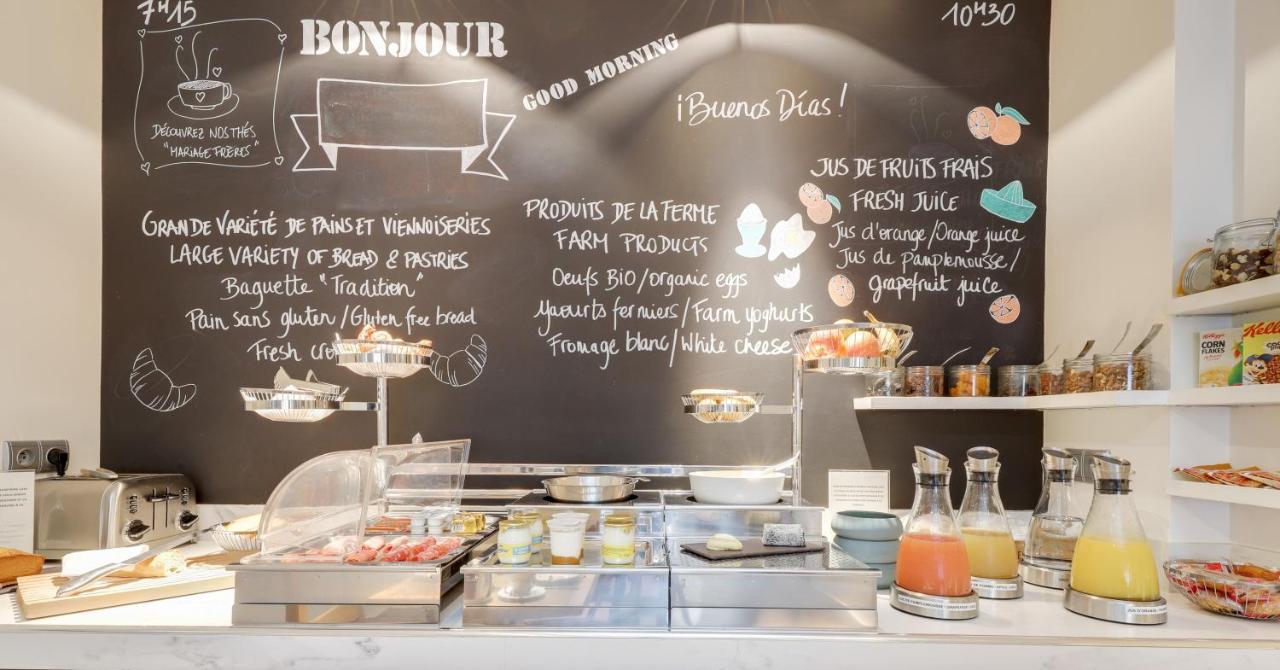 7H15
10H30
BONJOUR
GOOD MORNING
¡Buenos Días!
DÉCOUVREZ NOS THÉS
"MARIAGE FRÈRES"
GRANDE VARIÉTÉ DE PAINS ET VIENNOISERIES
LARGE VARIETY OF BREAD & PASTRIES
Baguette "Tradition"
Pain sans gluten / Gluten free bread
Fresh cro
PRODUITS DE LA FERME
FARM PRODUCTS
Oeufs BIO/organic eggs
Yaourts fermiers/Farm yoghurts
Fromage blanc/White cheese
JUS DE FRUITS FRAIS
FRESH JUICE
Jus d'orange/Orange juice
Jus de pamplemousse/
grapefruit juice
Kellogg's
CORN
FLAKES
Kello